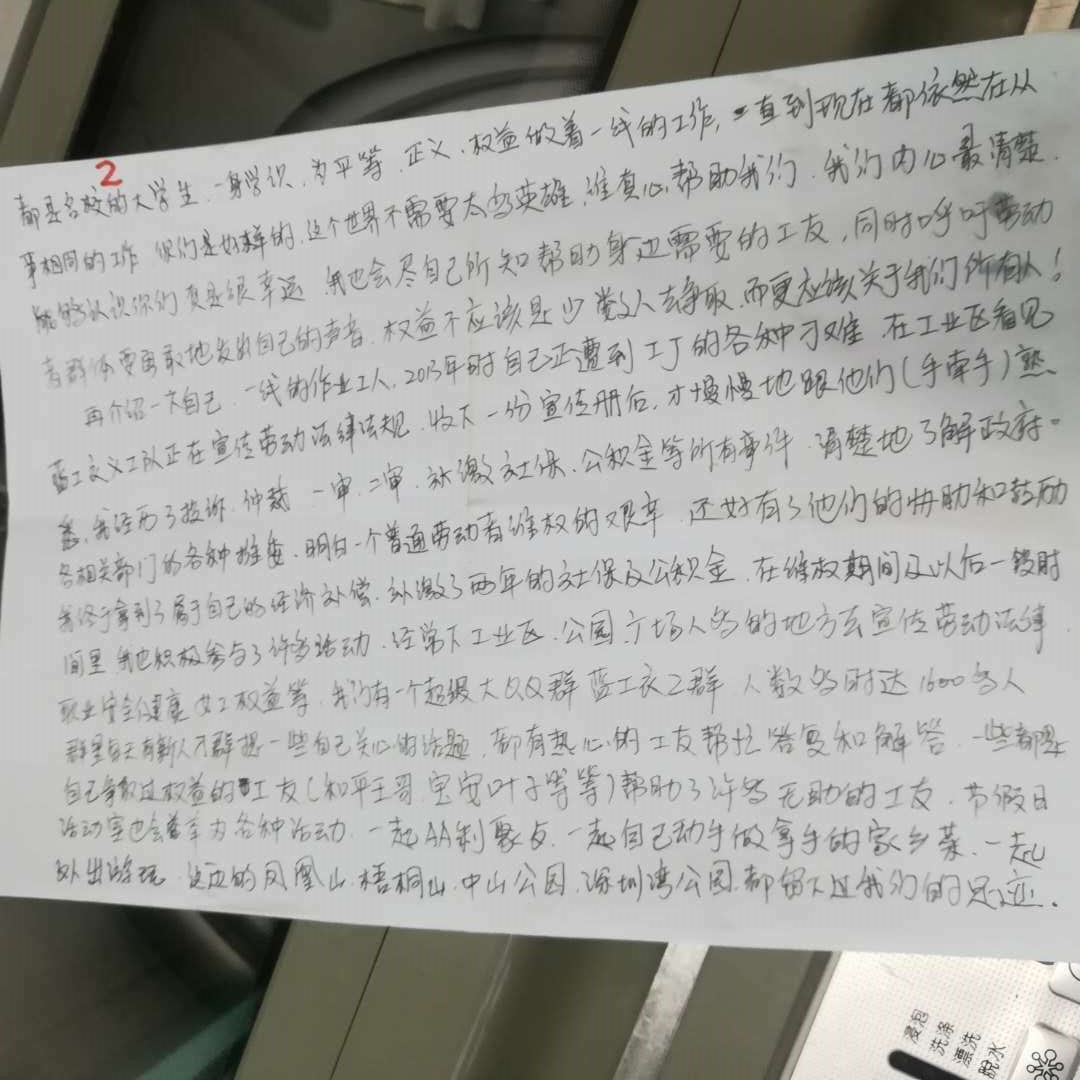 2
都是名校的大学生,一身学识,为平等,正义,权益做着一线的工作,一直到现在都依然在从
事相同的工作 你们是好样的,这个世界不需要太多英雄,谁真心帮助我们,我们内心最清楚.
能够认识你们真是很幸运 我也会尽自己所知帮助身边需要的工友,同时呼吁劳动
者群体要勇敢地发出自己的声音,权益不应该是少数人去争取,而更应该关于我们所有人!
再介绍一下自己,一线的作业工人,2013年时自己正遭到工厂的各种刁难,在工业区看见
蓝工衣义工队正在宣传劳动法律法规,收下一份宣传册后,才慢慢地跟他们(手牵手)熟
悉,我经历了投诉,仲裁,一审,二审,补缴社保,公积金等所有事件,清楚地了解政府
各相关部门的各种推诿,明白一个普通劳动者维权的艰辛,还好有了他们的协助和鼓励
我终于拿到了属于自己的经济补偿,补缴了两年的社保及公积金,在维权期间及以后一段时
间里 我也积极参与了许多活动,经常下工业区,公园广场人多的地方去宣传劳动法律,
职业安全健康 女工权益等,我们有一个超级大QQ群 蓝工衣2群,人数多时达1600多人
群里每天有新人入群提一些自己关心的话题,都有热心的工友帮忙答复和解答,一些都是
自己争取过权益的工友(和平王哥,宝安叶子等等)帮助了许多无助的工友,节假日
活动室也会举办各种活动,一起AA制聚点,一起自己动手做拿手的家乡菜,一起
外出游玩,这边的凤凰山,梧桐山,中山公园,深圳湾公园,都留下过我们的足迹.
浸泡
洗涤
漂洗
脱水